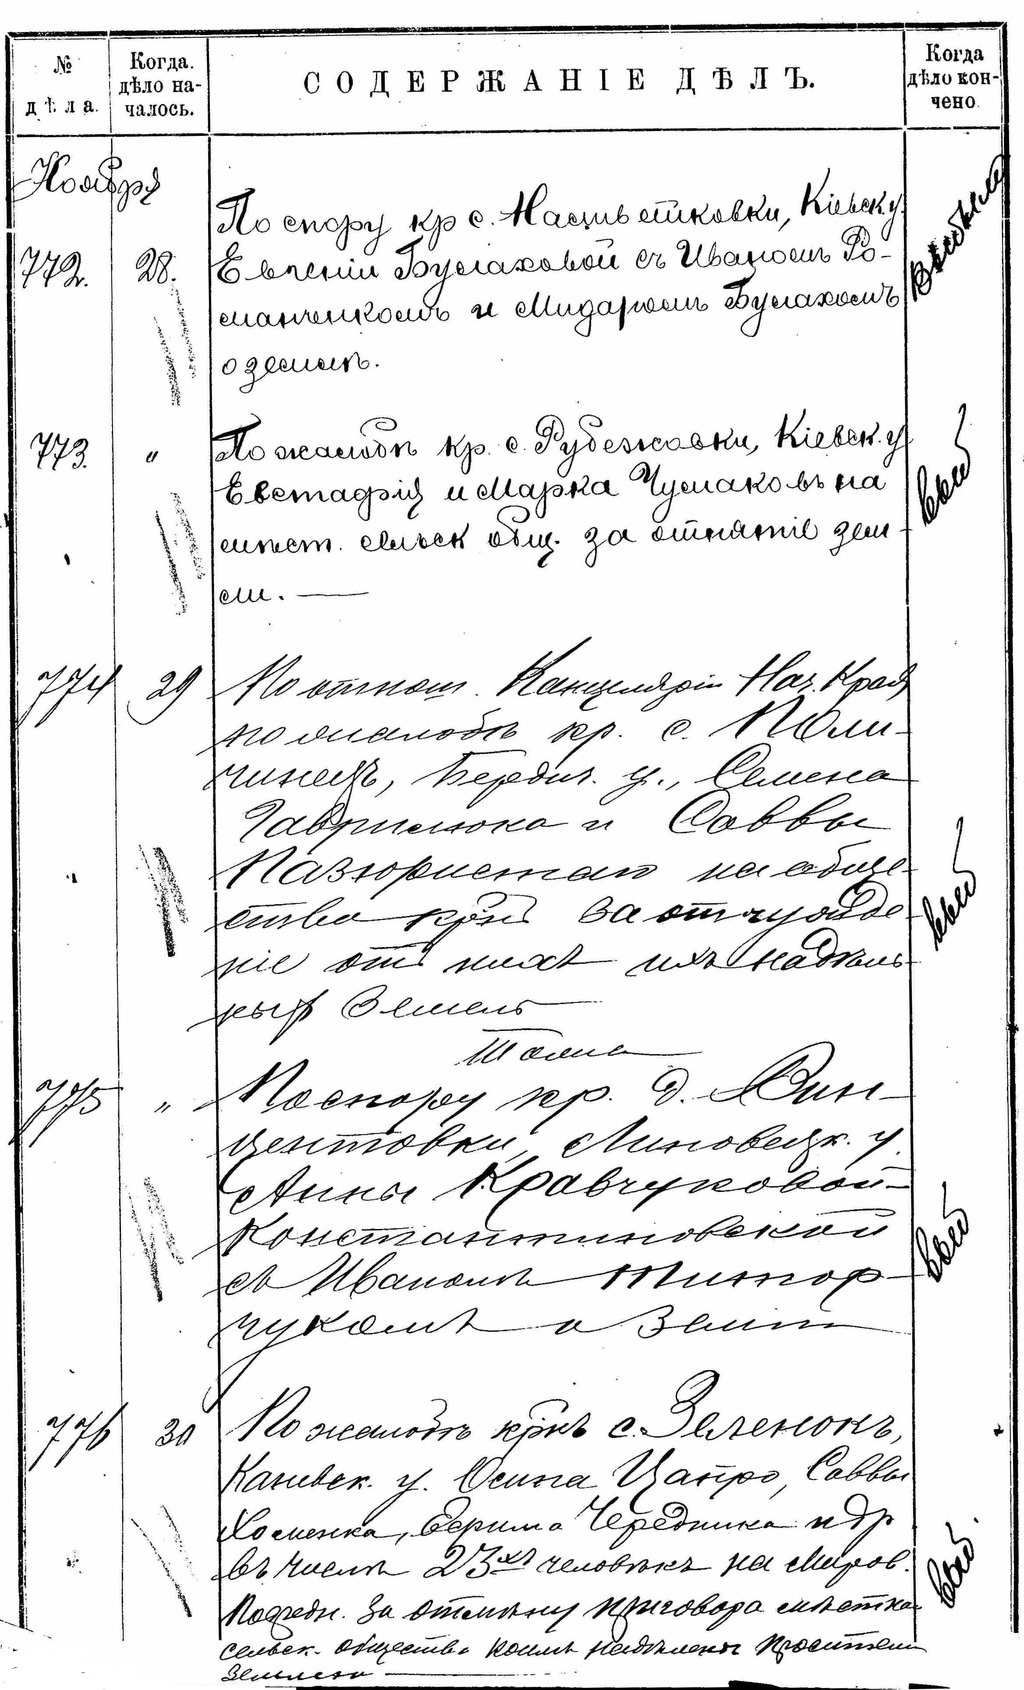 № дѣла.
Когда дѣло началось.
СОДЕРЖАНІЕ ДѢЛЪ.
Когда дѣло кончено.
Ноября
772. 28.
По спору кр с. Кіевск. у
Евгеніи Булаховой съ Иваномъ Ро-
манченкомъ и Булахомъ
о землѣ.
773. "
По жалобѣ кр. с. Рубежовки, Кіевск. у
Евстафія и Марка Чумаковъ на
мѣст. сельск общ. за отнятіе зем
ли. —
774 29
По отнош. Канцеляріи Нач. Края
по жалобѣ кр. с. Поли-
чинецъ, Бердич. у., Семена
Гаврилюка и Саввы
на обще-
ство крнъ за отчужде-
ніе отъ нихъ ихъ надѣль-
ныхъ земель
775 "
По спору кр. д. Вин-
центовки, Липовецк. у.
Анны Кравчуковой-
Константиновской
съ Иваномъ
чукомъ о землѣ
776 30
По жалобѣ крнъ с. Зеленокъ,
Каневск. у. Осипа Цапро, Саввы
Хоменка, Чередника и др
въ числѣ 23хъ человѣкъ на Миров.
Посредн. за отмѣну приговора мѣстна
сельск. общества коимъ надѣлены просители
землею —